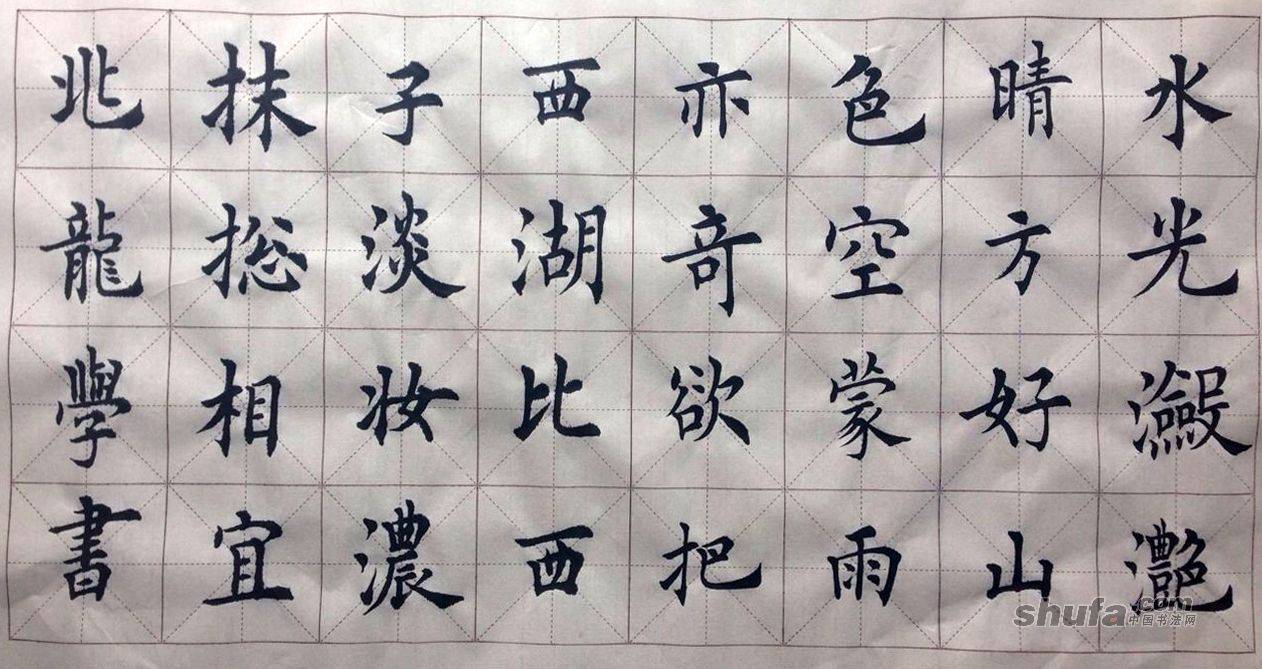 水光瀲灧
晴方好山
色空蒙雨
亦奇欲把
西湖比西
子淡妆濃
抹捴相宜
北龍學書
shufa.com
中国书法网